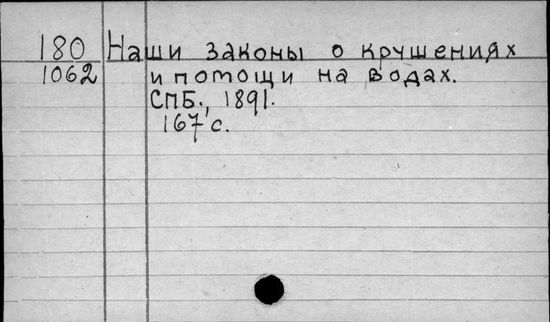 180 Наши законы о крушениях
1062 и помощи на водах.
СПБ., 1891.
167 с.